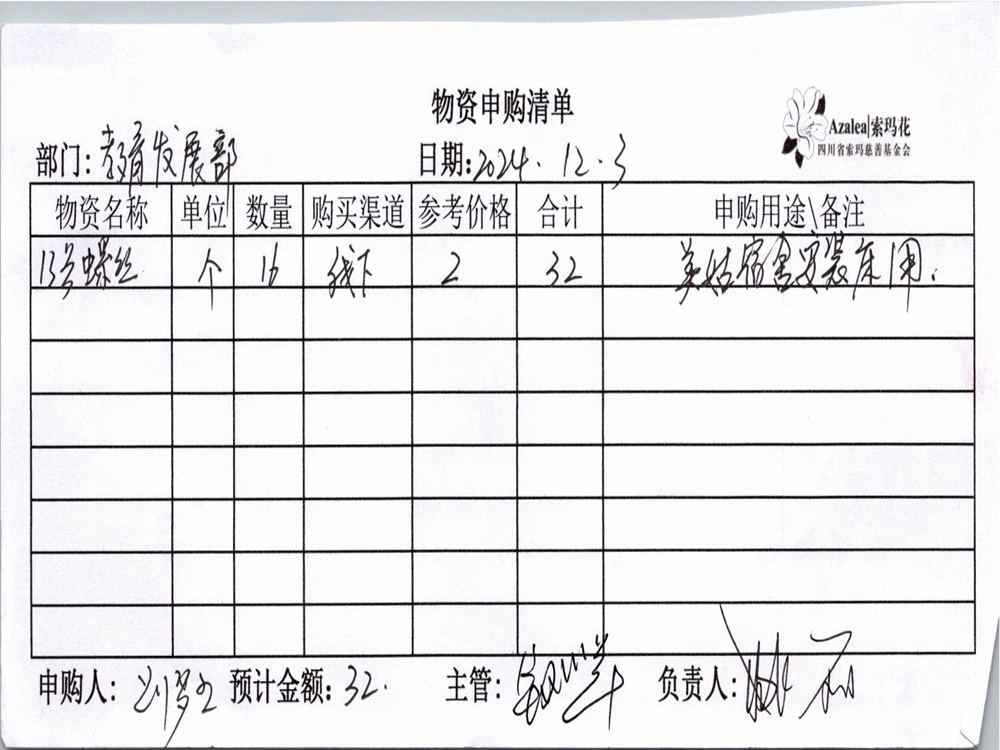 物资申购清单
Azalea|索玛花
四川省索玛慈善基金会
部门: 教育发展部 日期: 2024.12.3
物资名称 单位 数量 购买渠道 参考价格 合计 申购用途\备注
13号螺丝 个 16 线下 2 32 美姑宿舍安装床用.
申购人: 预计金额: 32. 主管: 负责人: